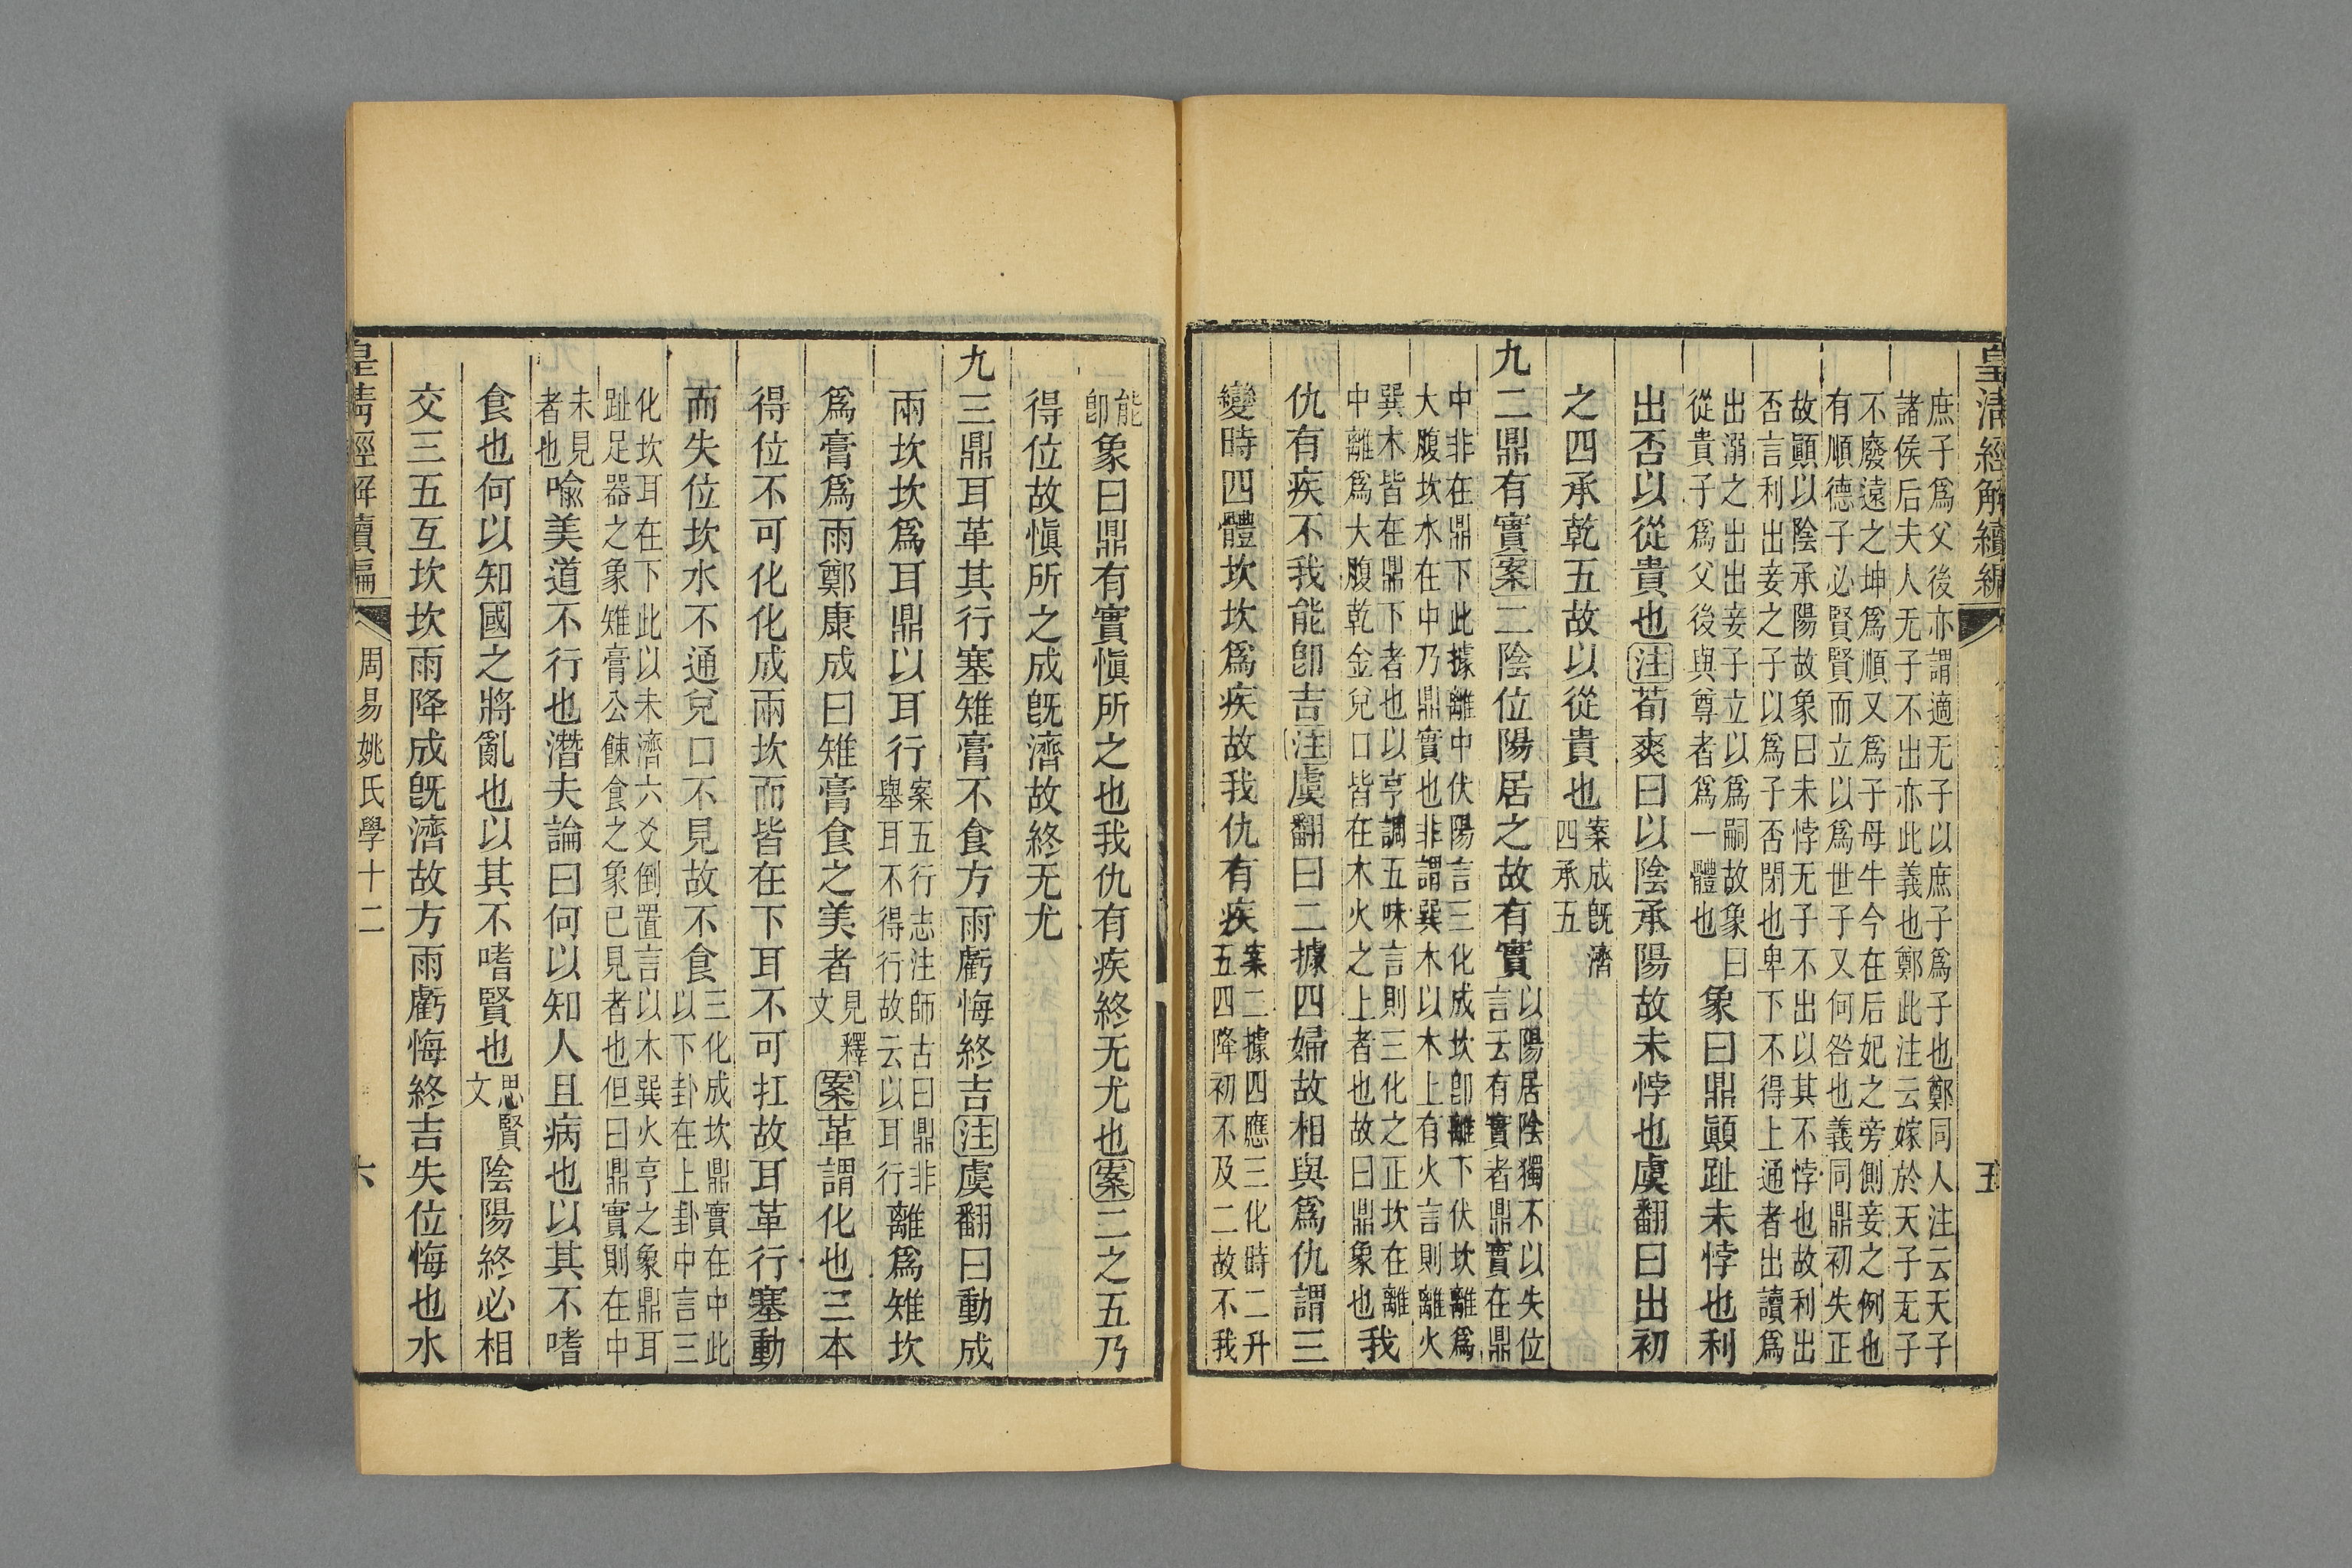 皇清經解續編
五
庶子爲父後亦謂適无子以庶子爲子也鄭同人注云天子
諸侯后夫人无子不出亦此義也鄭此注云嫁於天子无子
不廢遠之坤爲順又爲子母牛今在后妃之旁側妾之例也
有順德子必賢賢而立以爲世子又何咎也義同鼎初失正
故顚以陰承陽故象曰未悖无子不出以其不悖也故利出
否言利出妾之子以爲子否閉也卑下不得上通者出讀爲
出溺之出出妾子立以爲嗣故象曰
從貴子爲父後與尊者爲一體也
象曰鼎顚趾未悖也利
出否以從貴也注荀爽曰以陰承陽故未悖也虞翻曰出初
之四承乾五故以從貴也
案成旣濟
四承五
九二鼎有實案二陰位陽居之故有實
以陽居陰獨不以失位
言云有實者鼎實在鼎
中非在鼎下此據離中伏陽言三化成坎卽離下伏坎離爲
大腹坎水在中乃鼎實也非謂巽木以木上有火言則離火
巽木皆在鼎下者也以亨調五味言則三化之正坎在離
中離爲大腹乾金兌口皆在木火之上者也故曰鼎象也
我
仇有疾不我能卽吉注虞翻曰二據四婦故相與爲仇謂三
變時四體坎坎爲疾故我仇有疾
案二據四應三化時二升
五四降初不及二故不我
能
卽
象曰鼎有實愼所之也我仇有疾終无尤也案二之五乃
得位故愼所之成旣濟故終无尤
九三鼎耳革其行塞雉膏不食方雨虧悔終吉注虞翻曰動成
兩坎坎爲耳鼎以耳行
案五行志注師古曰鼎非
舉耳不得行故云以耳行
離爲雉坎
爲膏爲雨鄭康成曰雉膏食之美者
見釋
文
案革謂化也三本
得位不可化化成兩坎而皆在下耳不可扛故耳革行塞動
而失位坎水不通兌口不見故不食
三化成坎鼎實在中此
以下卦在上卦中言三
化坎耳在下此以未濟六爻倒置言以木巽火亨之象鼎耳
趾足器之象雉膏公餗食之象已見者也但曰鼎實則在中
未見
者也
喩美道不行也潛夫論曰何以知人且病也以其不嗜
食也何以知國之將亂也以其不嗜賢也
思賢
文
陰陽終必相
交三五互坎坎雨降成旣濟故方雨虧悔終吉失位悔也水
皇清經解續編
周易姚氏學十二
六